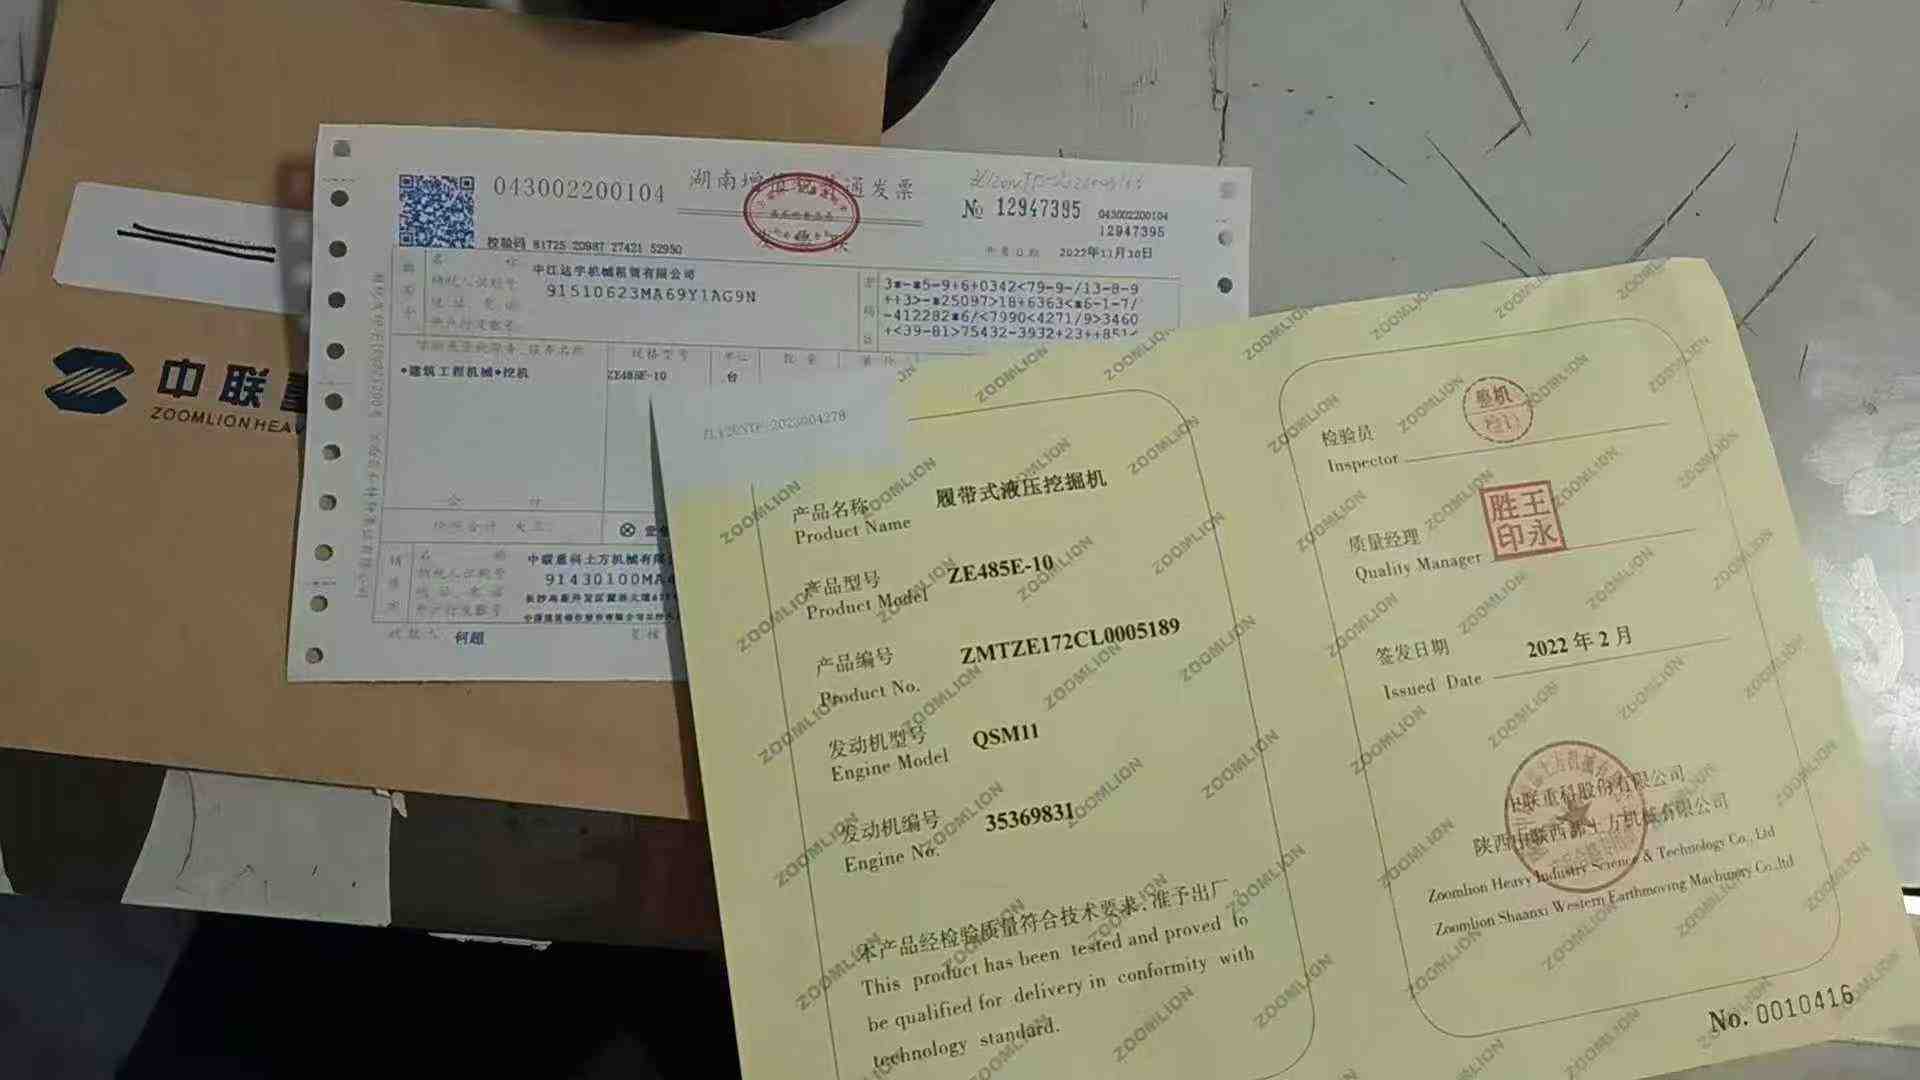 中联
ZOOMLION HEAV
043002200104
湖南增值税普通发票
№ 12947395
043002200104
12947395
校验码 81725 20987 27421 52950
2022年11月30日
中江达宇机械租赁有限公司
纳税人识别号
91510623MA69Y1AG9N
地址、电话
开户行及账号
3*-*5-9+6+0342<79-9-/13-8-9
++3>-*25097>18+6363<*6-1-7/
-412282*6/<7990<4271/9>3460
+<39-81>75432-3932+23++851<
规格型号
单位
数量
*建筑工程机械*挖机
ZE485E-10
台
合 计
价税合计
中联重科土方机械有限
纳税人识别号
91430100MA
地址、电话
开户行及账号
收款人
何超
产品名称
Product Name
履带式液压挖掘机
产品型号
Product Model
ZE485E-10
产品编号
Product No.
ZMTZE172CL0005189
发动机型号
Engine Model
QSM11
发动机编号
Engine No.
35369831
本产品经检验质量符合技术要求,准予出厂
This product has been tested and proved to
be qualified for delivery in conformity with
technology standard.
检验员
Inspector
整机
质量经理
Quality Manager
王永
胜印
签发日期
Issued Date
2022 年 2 月
中联重科股份有限公司
陕西中联西部土方机械有限公司
Zoomlion Heavy Industry Science & Technology Co., Ltd
Zoomlion Shaanxi Western Earthmoving Machinery Co.,ltd
No. 0010416